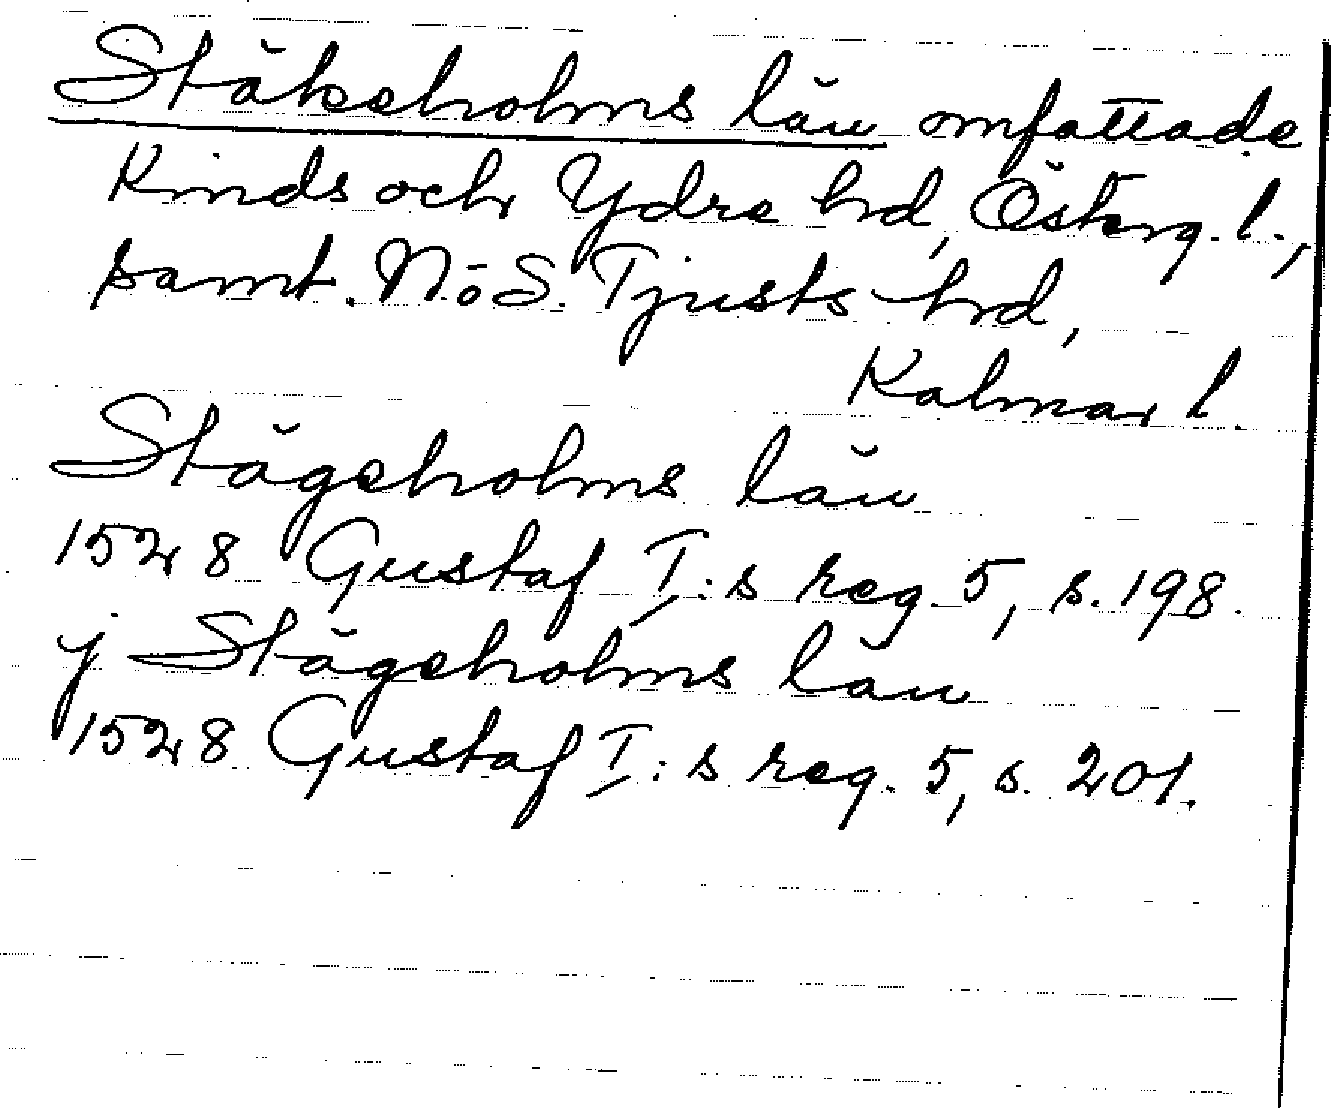 Stäkeholms län omfattade
Kinds och Ydre hd, Österg. l.,
samt. N. o S. Tjusts hd,
Kalmar l.
Stägeholms län
1528 Gustaf I:s reg. 5, s. 198.
j Stägeholms län
1528 Gustaf I:s reg. 5, s. 201.